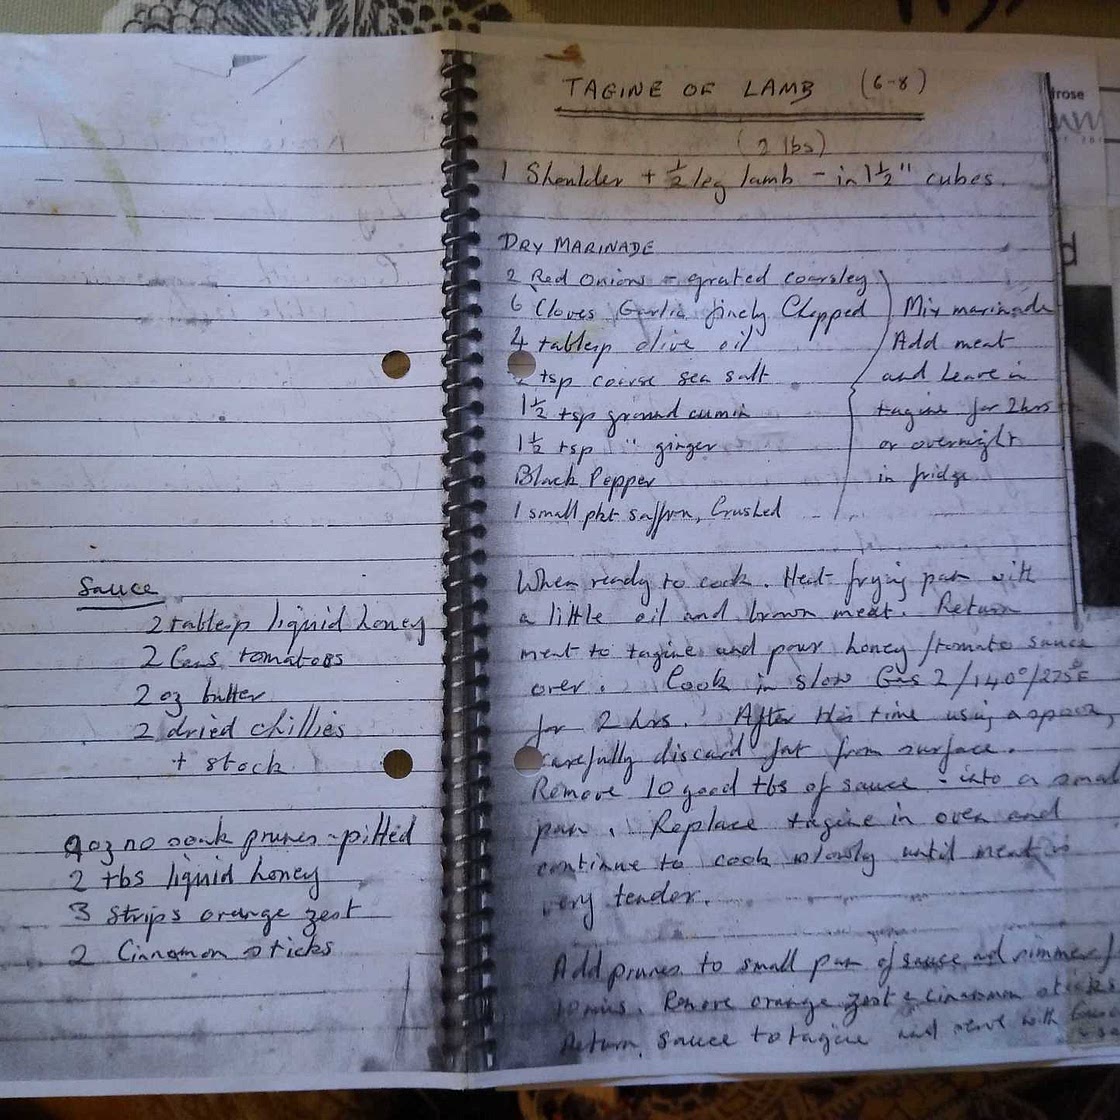 Sauce
2 tablesp liquid honey
2 Cans tomatoes
2 oz butter
2 dried chillies
+ stock
9 oz no soak prunes - pitted
2 tbs liquid honey
3 Strips orange zest
2 Cinnamon sticks
TAGINE OF LAMB (6-8)
(2 lbs)
1 Shoulder + ½ leg lamb - in 1½" cubes.
DRY MARINADE
2 Red Onions - grated coarsley
6 Cloves Garlic finely Chopped
4 tablesp olive oil
tsp coarse sea salt
1½ tsp ground cumin
1½ tsp " ginger
Black Pepper
1 small pkt saffron, Crushed
Mix marinade
Add meat
and leave in
tagine for 2hrs
or overnight
in fridge
When ready to cook. Heat frying pan with
a little oil and brown meat. Return
meat to tagine and pour honey/tomato sauce
over. Cook in slow Gas 2/140°/275°F
for 2 hrs. After this time using a spoon
carefully discard fat from surface.
Remove 10 good tbs of sauce - into a small
pan. Replace tagine in oven and
continue to cook slowly until meat is
very tender.
Add prunes to small pan of sauce and simmer
10 mins. Remove orange zest & cinnamon sticks
Return sauce to tagine and serve with
rose
d